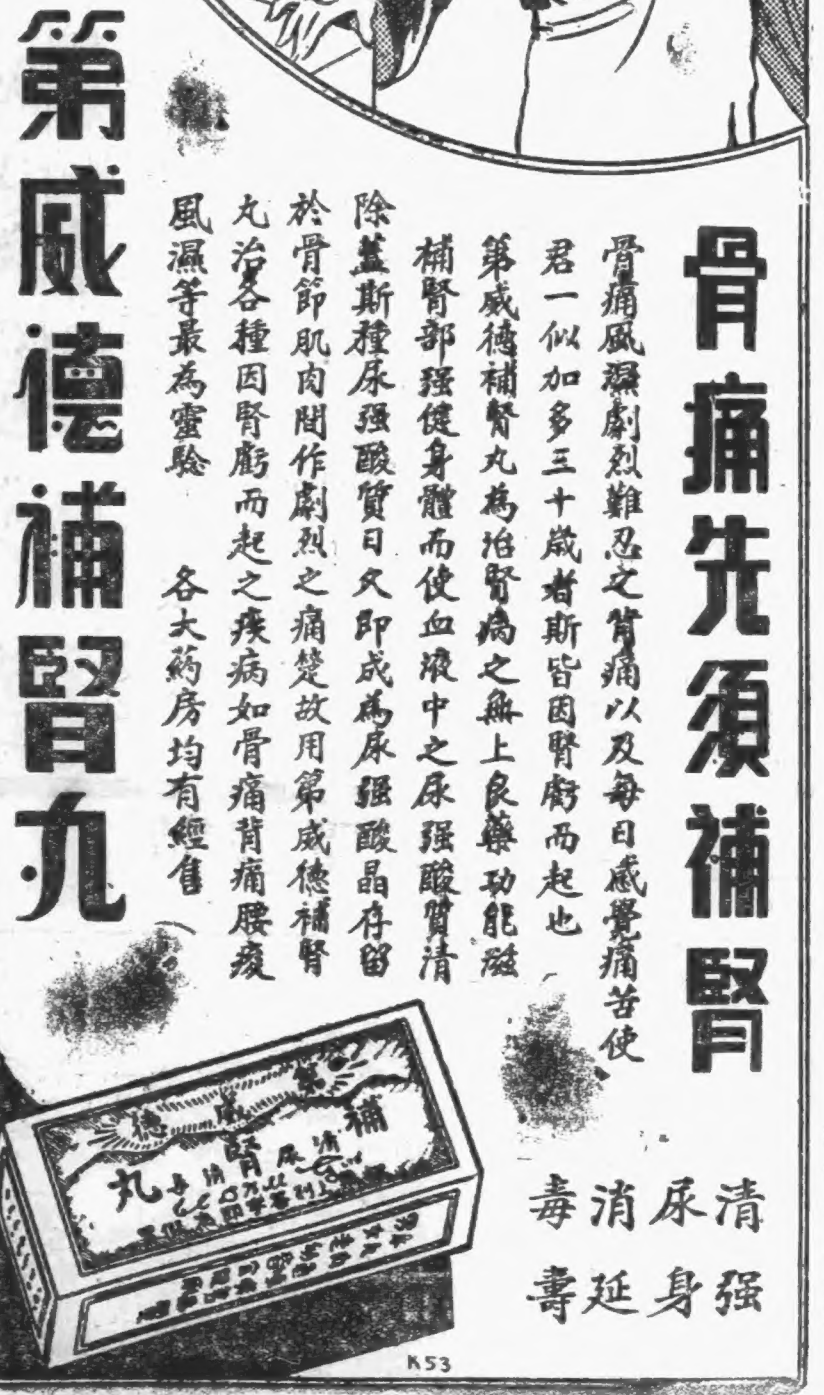 骨痛先須補腎
骨痛風濕劇烈難忍之背痛以及每日感覺痛苦使
君一似加多三十歲者斯皆因腎虧而起也
第威德補腎丸為治腎病之無上良藥功能滋
補腎部强健身體而使血液中之尿强酸質清
除蓋斯種尿强酸質日久即成為尿强酸晶存留
於骨節肌肉間作劇烈之痛楚故用第威德補腎
丸治各種因腎虧而起之疾病如骨痛背痛腰痠
風濕等最為靈驗　各大葯房均有經售
第威德補腎丸
清尿消毒
强身延壽
第威德
補腎丸
K53